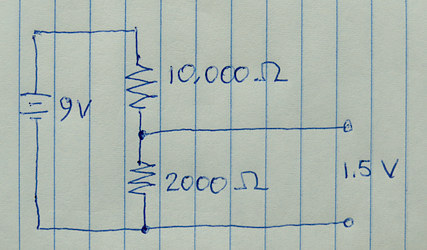 10,000 Ω
9V
1.5 V
2000 Ω